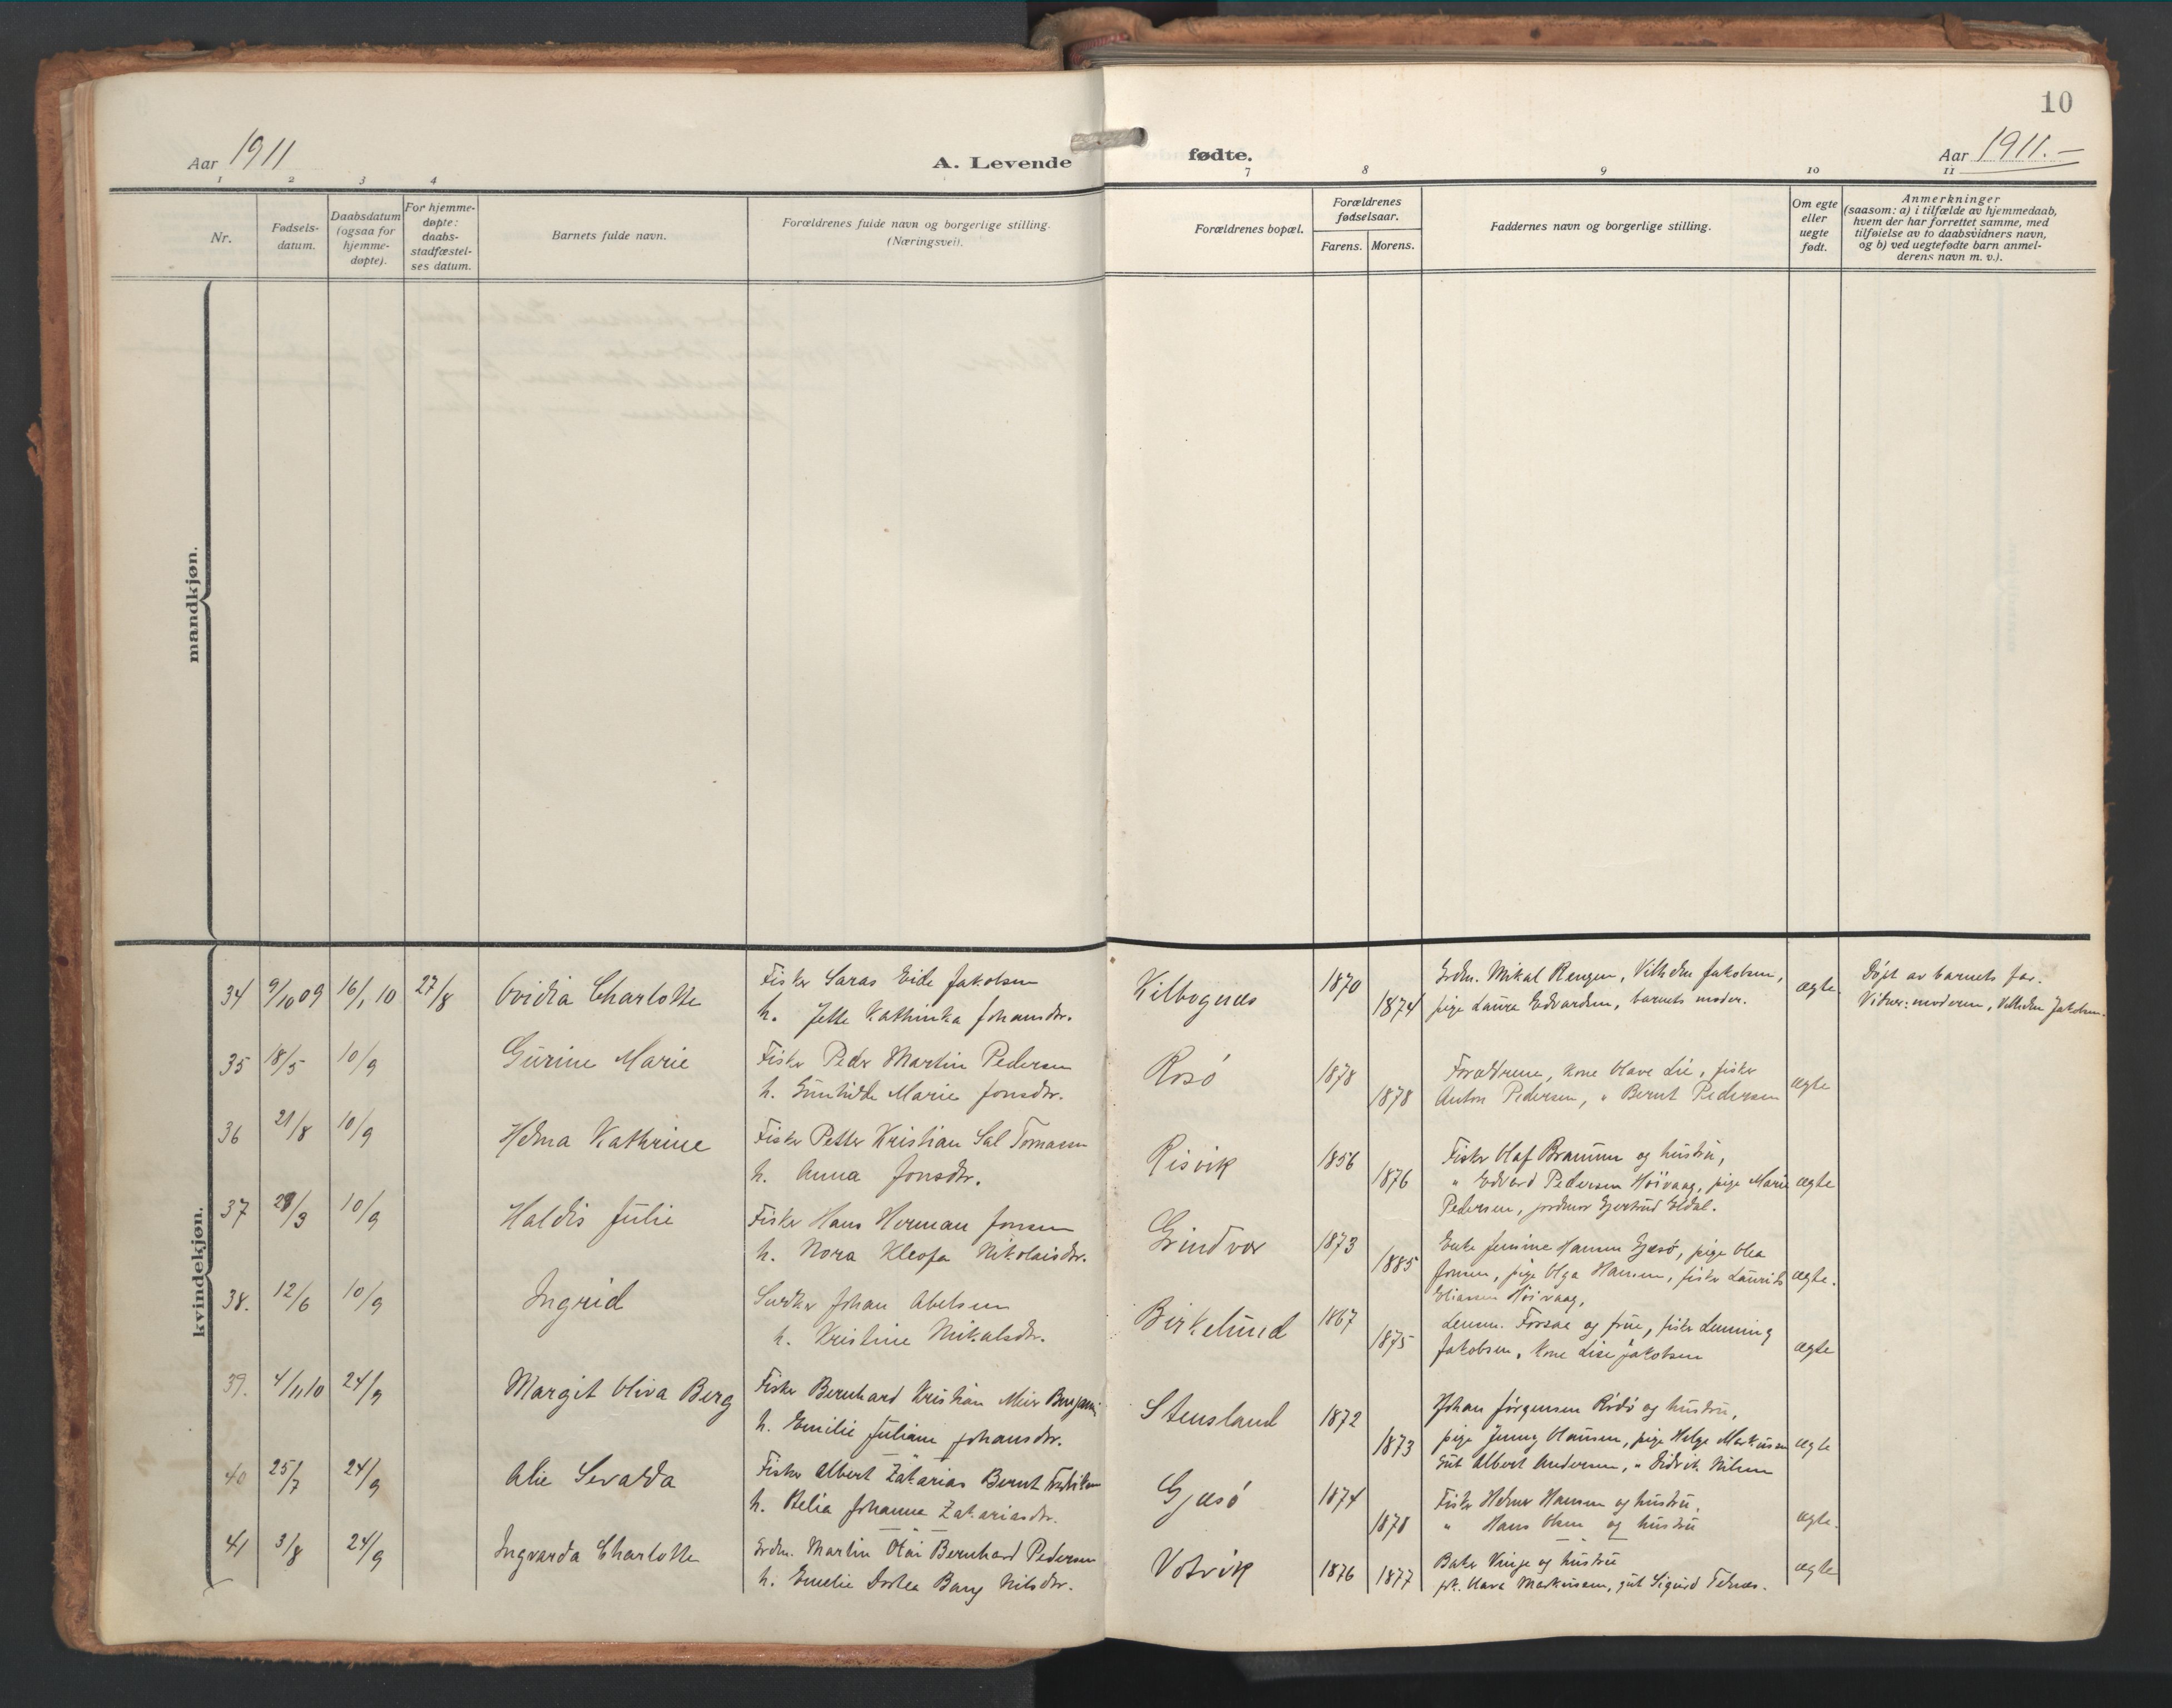 10
Aar 1911
A. Levende
fødte.
Aar 1911.-
1 2 3 4
7 8 9 10 11
Nr.
Fødsels-
datum.
Daabsdatum
(ogsaa for
hjemme-
døpte).
For hjemme-
døpte:
daabs-
stadfæstel-
ses datum.
Barnets fulde navn.
Forældrenes fulde navn og borgerlige stilling.
(Næringsvei).
Forældrenes bopæl.
Forældrenes
fødselsaar.
Farens. Morens.
Faddernes navn og borgerlige stilling.
Om egte
eller
uegte
født.
Anmerkninger
(saasom: a) i tilfælde av hjemmedaab,
hvem der har forrettet samme, med
tilføielse av to daabsvidners navn,
og b) ved uegtefødte barn anmel-
derens navn m. v.).
mandkjøn.
kvindekjøn.
34 9/10 09 16/1 10 27/8 Ovidia Charlotte
Fisker Saras Eide Jakobsen
h. Jette Kathinka Johansdtr.
Kilbognes 1870 1874
Grdm. Mikal Rengen, Vilhelm Jakobsen,
pige Laura Edvardsen, barnets moder.
ægte
Døpt av barnets far.
Vidner: moderen, Vilhelm Jakobsen.
35 18/5 10/9 Gurine Marie
Fisker Peder Martin Pedersen
h. Gunhilde Marie Jonsdtr.
Rosö 1878 1878
Forældrene, kone Olave Lie, fisker
Anton Pedersen, " Bernt Pedersen
ægte
36 21/8 10/9 Helma Kathrine
Fisker Petter Kristian Sal Tomassen
h. Anna Jonsdtr.
Risvik 1856 1876
Fisker Olaf Bramm og hustru,
" Edvard Pedersen Höivaag, pige Marie
Pedersen, jordmor Gjertrud Eldal.
ægte
37 10/9 Haldis Julie
Fisker Hans Herman Jonsen
h. Nora Kleofa Nikolaisdtr.
Grindvor 1873 1885
Enke Jensine Hansen Gjesö, pige Olea
Jonsen, pige Olga Hansen, fisker Laurits
Eliassen Höivaag,
ægte.
38. 12/6 10/9 Ingrid
Johan Abelsen
h. Kristine Mikalsdtr.
Birkelund 1867 1875
Lensm. Forsaa og frue, fisker Lemming
Jakobsen, kone Lise Jakobsen
ægte
39. 4/11 10 24/9 Margit Oliva Berg
Fisker Bernhard Kristian Meier
h. Emilie Juliane Johansdtr.
Stensland 1872 1873
Johan Jörgensen Rödö og hustru,
pige Jenny Olausen, pige Helga Markussen
gut Albert Andersen, " Didrik Nilsen
ægte
40 25/7 24/9 Alie Sevalda
Fisker Albert Zakarias Bernt Fredriksen
h. Johanna Zakariasdtr.
Gjesö 1874 1878
Fisker Helmer Hansen og hustru,
" Hans Olsen og hustru
ægte.
41 3/8 24/9 Ingvarda Charlotte
Grdm. Martin Bernhard Pedersen
h. Emelie Dortea Bang Nilsdtr.
Votvik 1876 1877
Baker Vinje og hustru
frk. Klara Markussen, gut Sigurd Telnes.
ægte